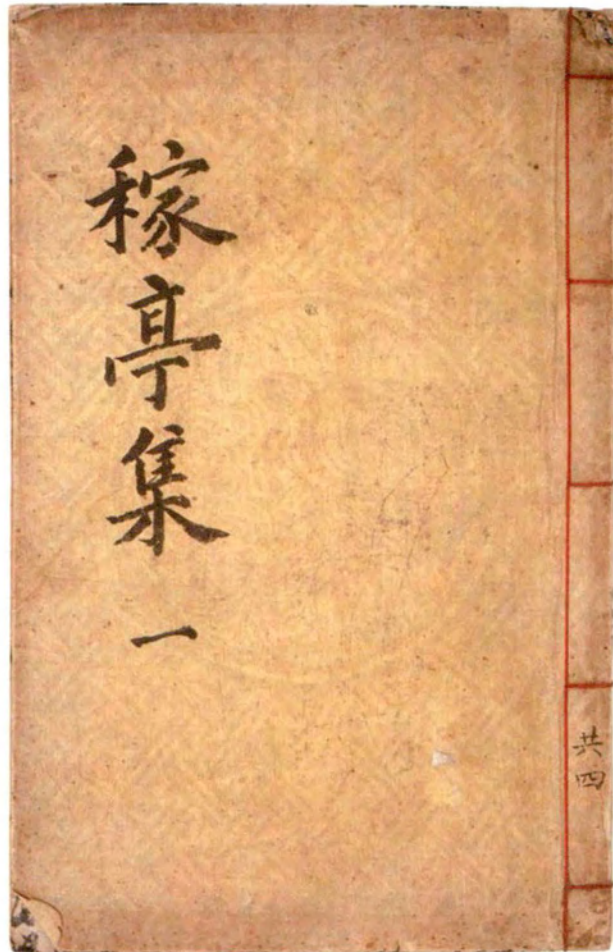 稼亭集 一
共四